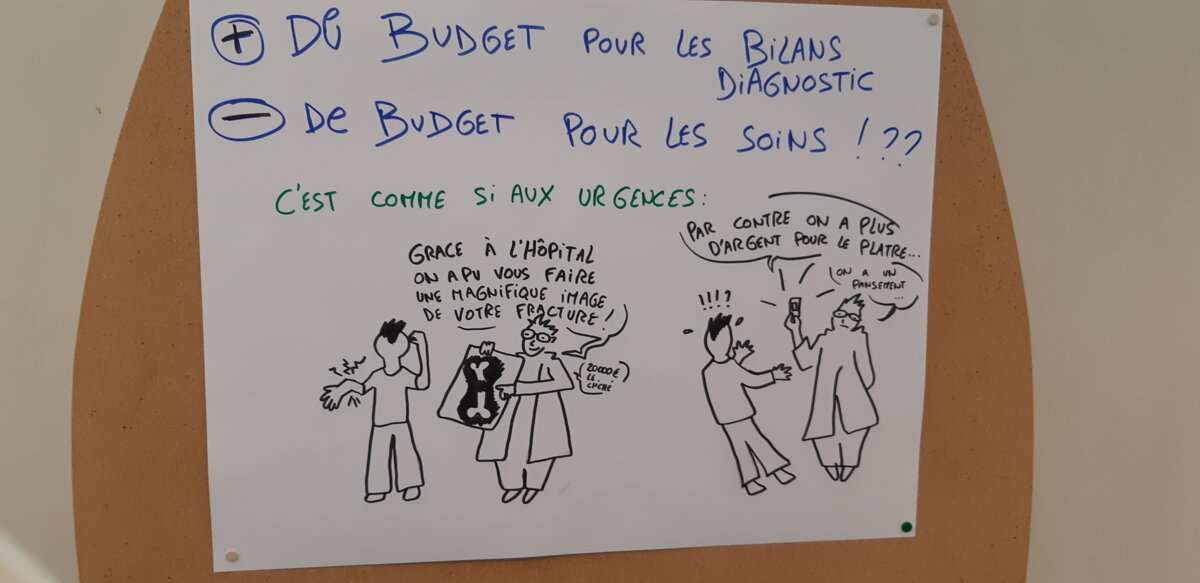 + DE BUDGET POUR LES BILANS
DIAGNOSTIC
- DE BUDGET POUR LES SOINS !??
C'EST COMME SI AUX URGENCES :
GRACE À L'HÔPITAL
ON A PU VOUS FAIRE
UNE MAGNIFIQUE IMAGE
DE VOTRE FRACTURE !
20000€
LE
CLICHÉ
PAR CONTRE ON A PLUS
D'ARGENT POUR LE PLATRE...
ON A UN
PANSEMENT
...
!!!?